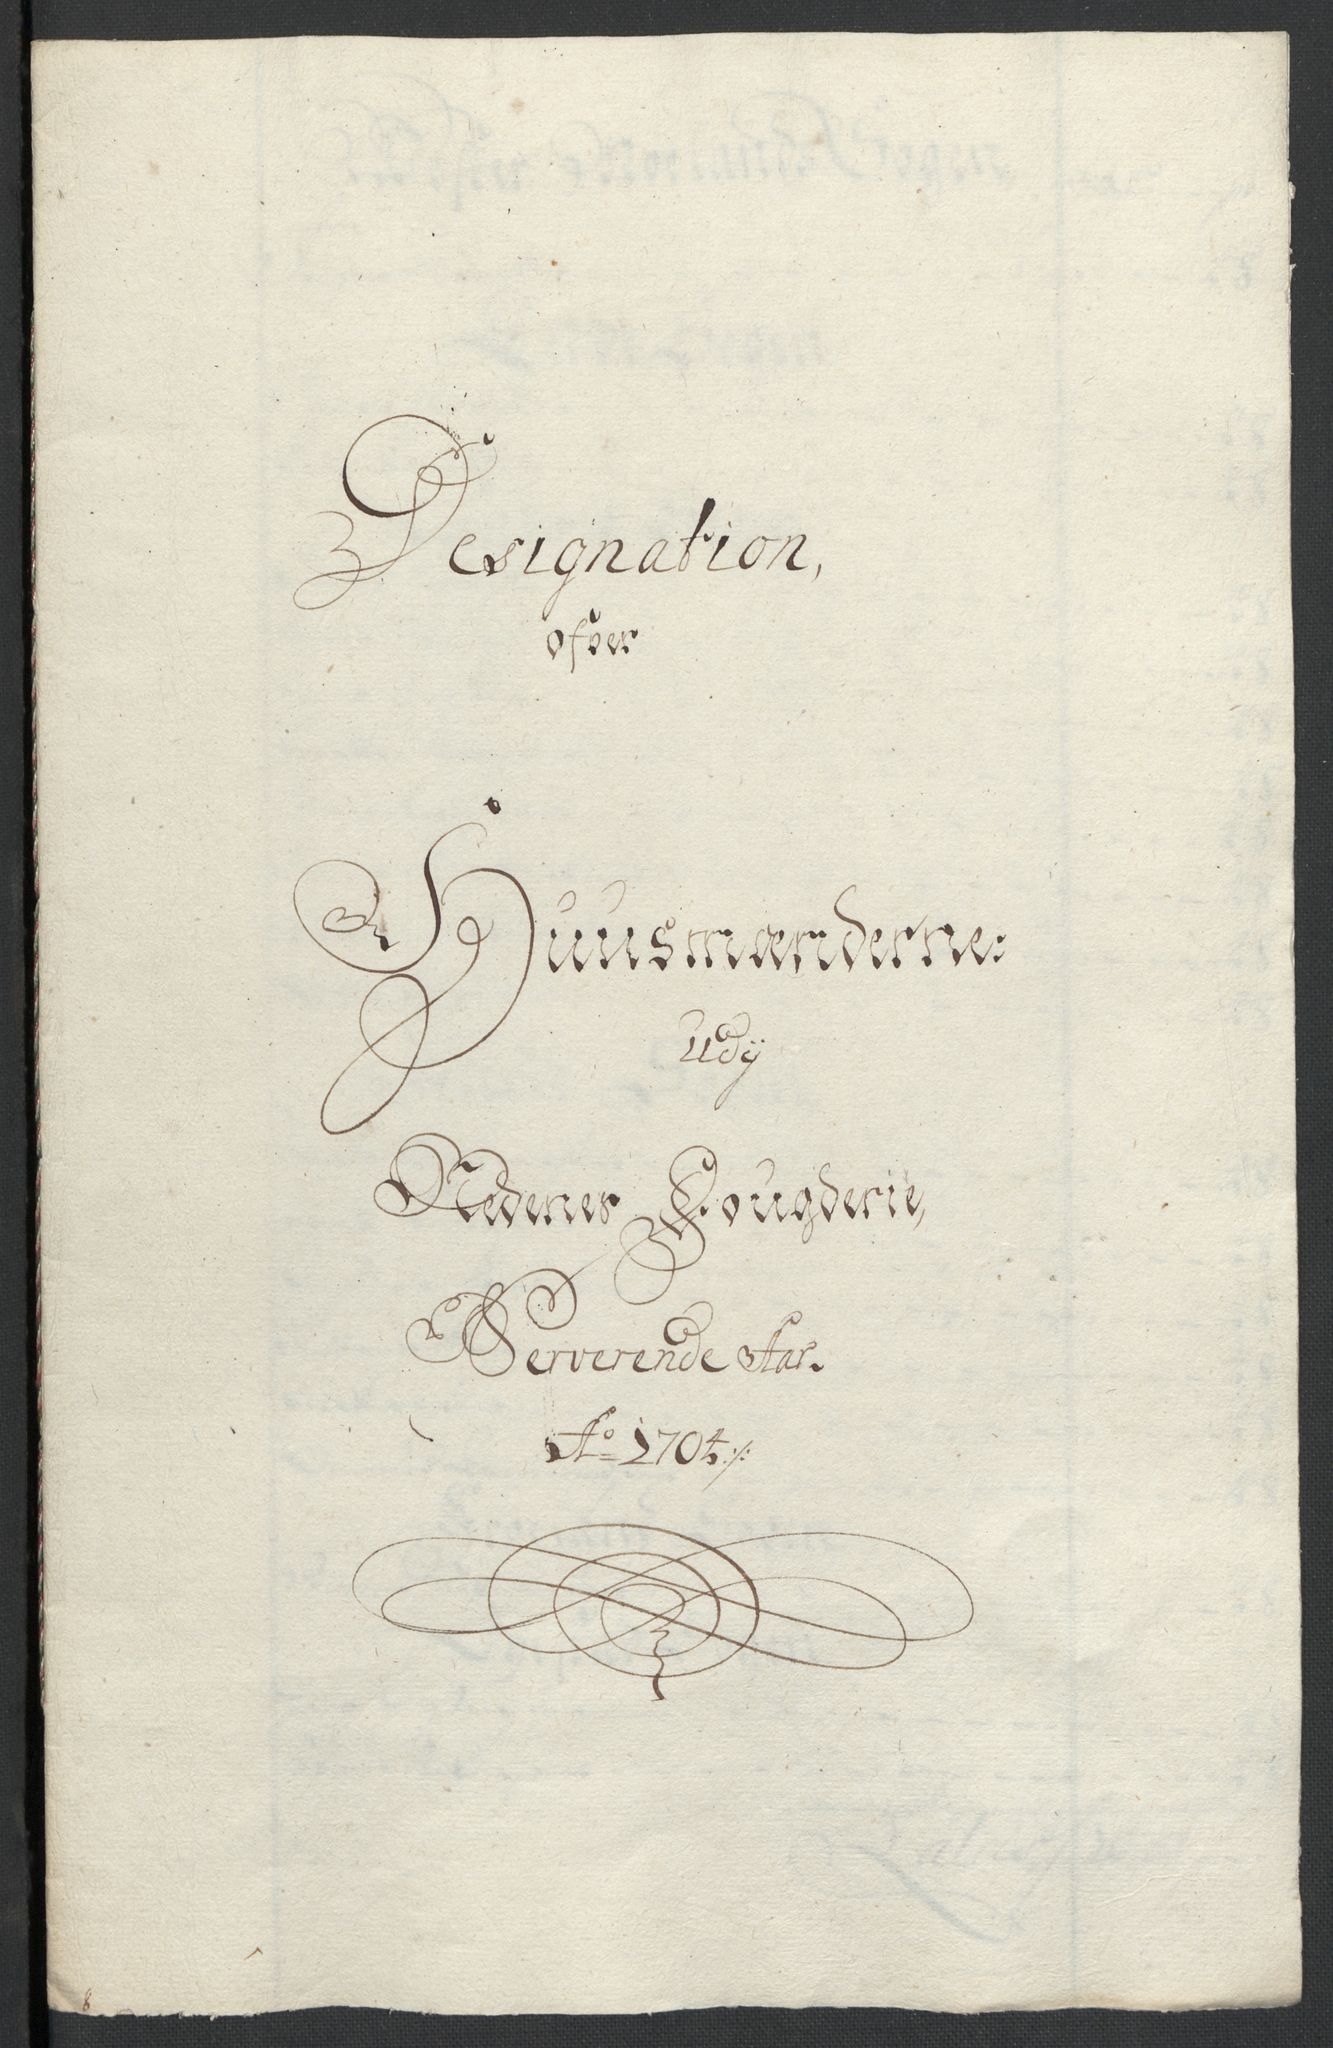 Designation,
ofver
Huusmænderne:
Udÿ
Nedenes Fougderie,
Ververende Aar.
Ao 1704:/:
8